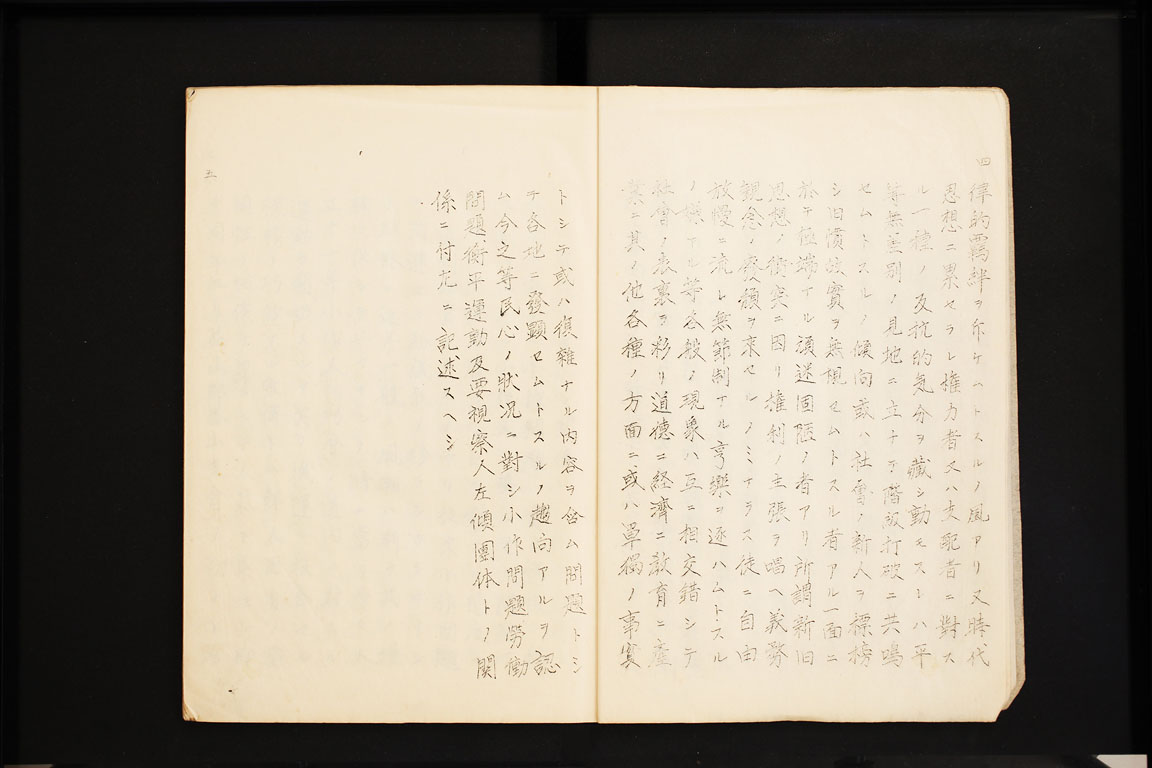 四
律的羈絆ヲ斥ケムトスルノ風アリ又時代
思想ニ累セラレ権力者又ハ支配者ニ對ス
ル一種ノ反抗的気分ヲ藏シ動モスレハ平
等無差別ノ見地ニ立チテ階級打破ニ共鳴
セムトスルノ傾向或ハ社會ノ新人ヲ標榜
シ旧慣故實ヲ無視セムトスル者アル一面ニ
於テ極端ナル頑迷固陋ノ者アリ所謂新旧
思想ノ衝突ニ因リ権利ノ主張ヲ唱ヘ義務
観念ノ廃頽ヲ来セルノミナラス徒ニ自由
放慢ニ流レ無節制ナル享樂ヲ逐ハムトスル
ノ様アル等各般ノ現象ハ互ニ相交錯シテ
社會ノ表裏ヲ彩リ道徳ニ経済ニ教育ニ産
業ニ其ノ他各種ノ方面ニ或ハ單獨ノ事実
トシテ或ハ復雜ナル内容ヲ含ム問題トシ
テ各地ニ發顯セムトスルノ趨向アルヲ認
ム今之等民心ノ状况ニ對シ小作問題勞働
問題衡平運動及要視察人左傾團体トノ関
係ニ付尤ニ記述スヘシ
五